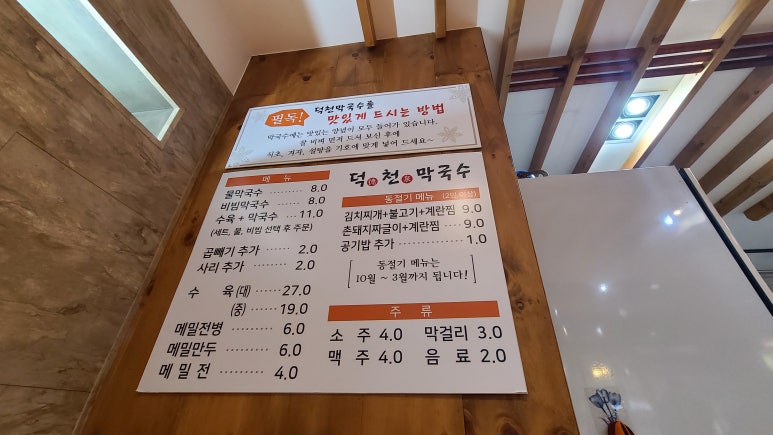 필독!
덕천막국수를
맛있게 드시는 방법
막국수에는 맛있는 양념이 모두 들어가 있습니다.
잘 비벼 먼저 드셔 보신 후에
식초, 겨자, 설탕을 기호에 맞게 넣어 드세요~
메 뉴
물막국수 ········ 8.0
비빔막국수 ······ 8.0
수육 + 막국수 ··· 11.0
(세트, 물, 비빔 선택 후 주문)
곱빼기 추가 ······ 2.0
사리 추가 ······· 2.0
수 육 (대) ······· 27.0
(중) ······· 19.0
메밀전병 ········ 6.0
메밀만두 ········· 6.0
메 밀 전 ········ 4.0
덕천막국수
동절기 메뉴 (2인 이상)
김치찌개+불고기+계란찜 9.0
촌돼지짜글이+계란찜 ···· 9.0
공기밥 추가 ··········· 1.0
동절기 메뉴는
10월 ~ 3월까지 됩니다!
주 류
소 주 4.0 막걸리 3.0
맥 주 4.0 음 료 2.0